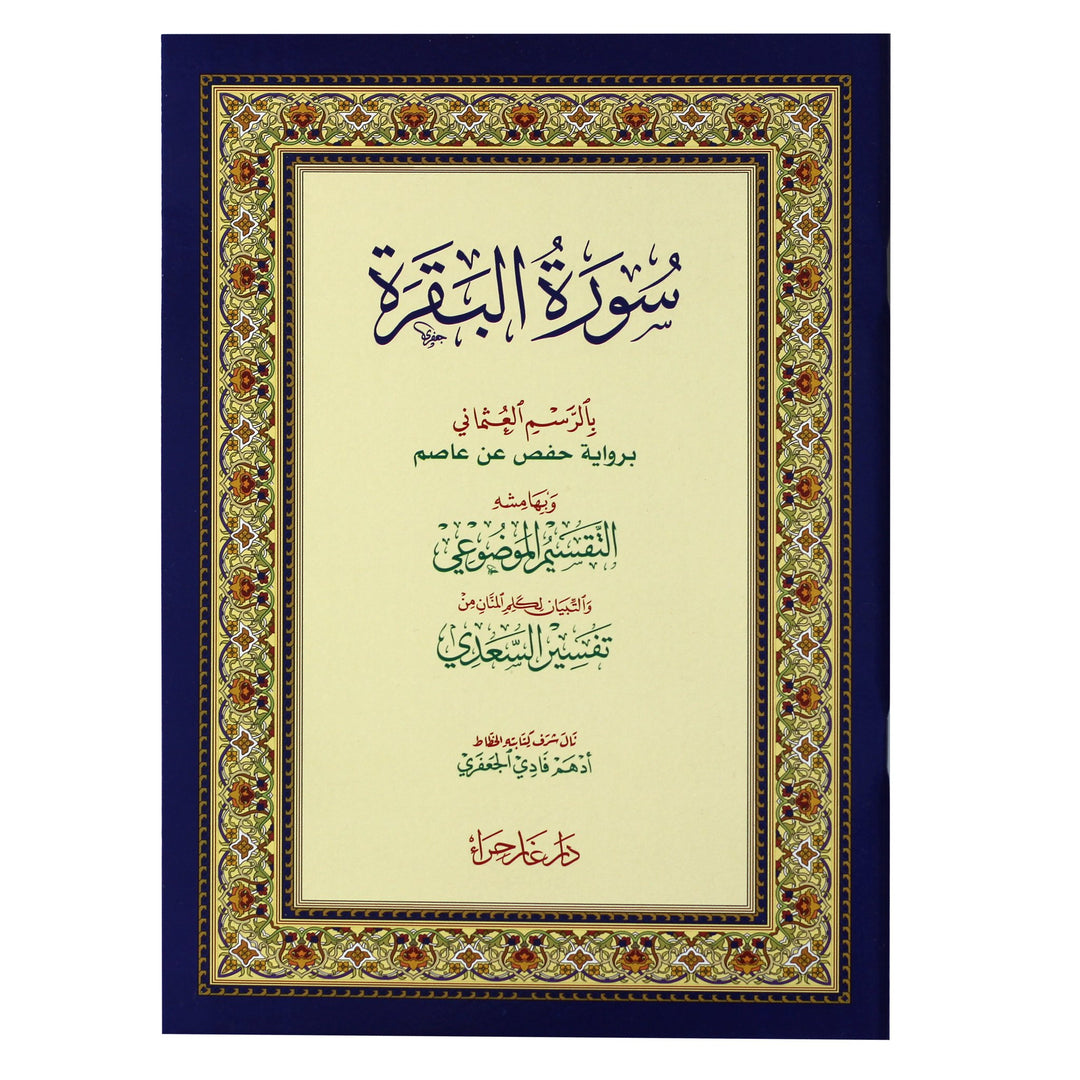 سُورَةُ البَقَرَة
جعفري
بِٱلرَّسْمِ ٱلعُثماني
برواية حفص عن عاصم
وَبِهَامِشِهِ
التَّقسِيْمُ المَوضُوْعِي
وَٱلتِّبيَان لِكَلِمِ المَنَّانِ مِنْ
تَفسِيْر السَّعْدِي
نَالَ شرَف كِتَابتِهِ الخطّاط
أدهَم فَادِي ٱلجَعفَري
دَار غَار حِرَاء